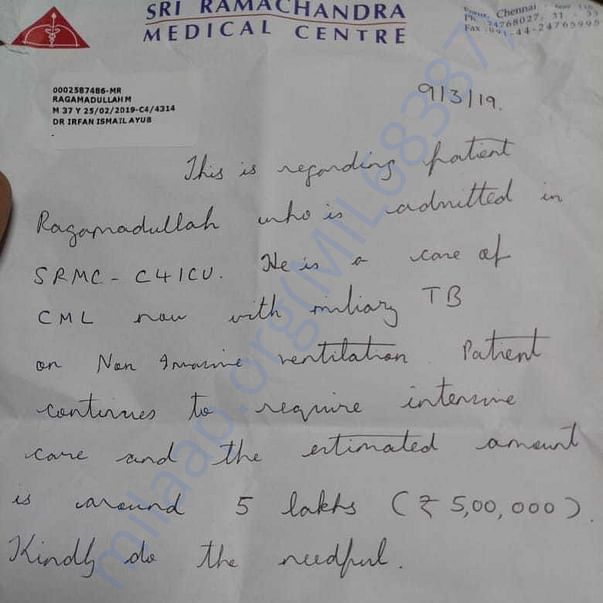 SRI RAMACHANDRA
MEDICAL CENTRE
Porur, Chennai
Ph: 24768027, 31 - 33
Fax : 091-44-24765995
0002587486-MR
RAGAMADULLAH M
M 37 Y 25/02/2019-C4/4314
DR IRFAN ISMAIL AYUB
9/3/19.
This is regarding patient
Ragamadullah who is admitted in
SRMC - C4 ICU. He is a case of
CML now with miliary TB
on Non Invasive ventilation. Patient
continues to require intensive
care and the estimated amount
is around 5 lakhs (₹ 5,00,000).
Kindly do the needful.
milaap.org(MIL683877)